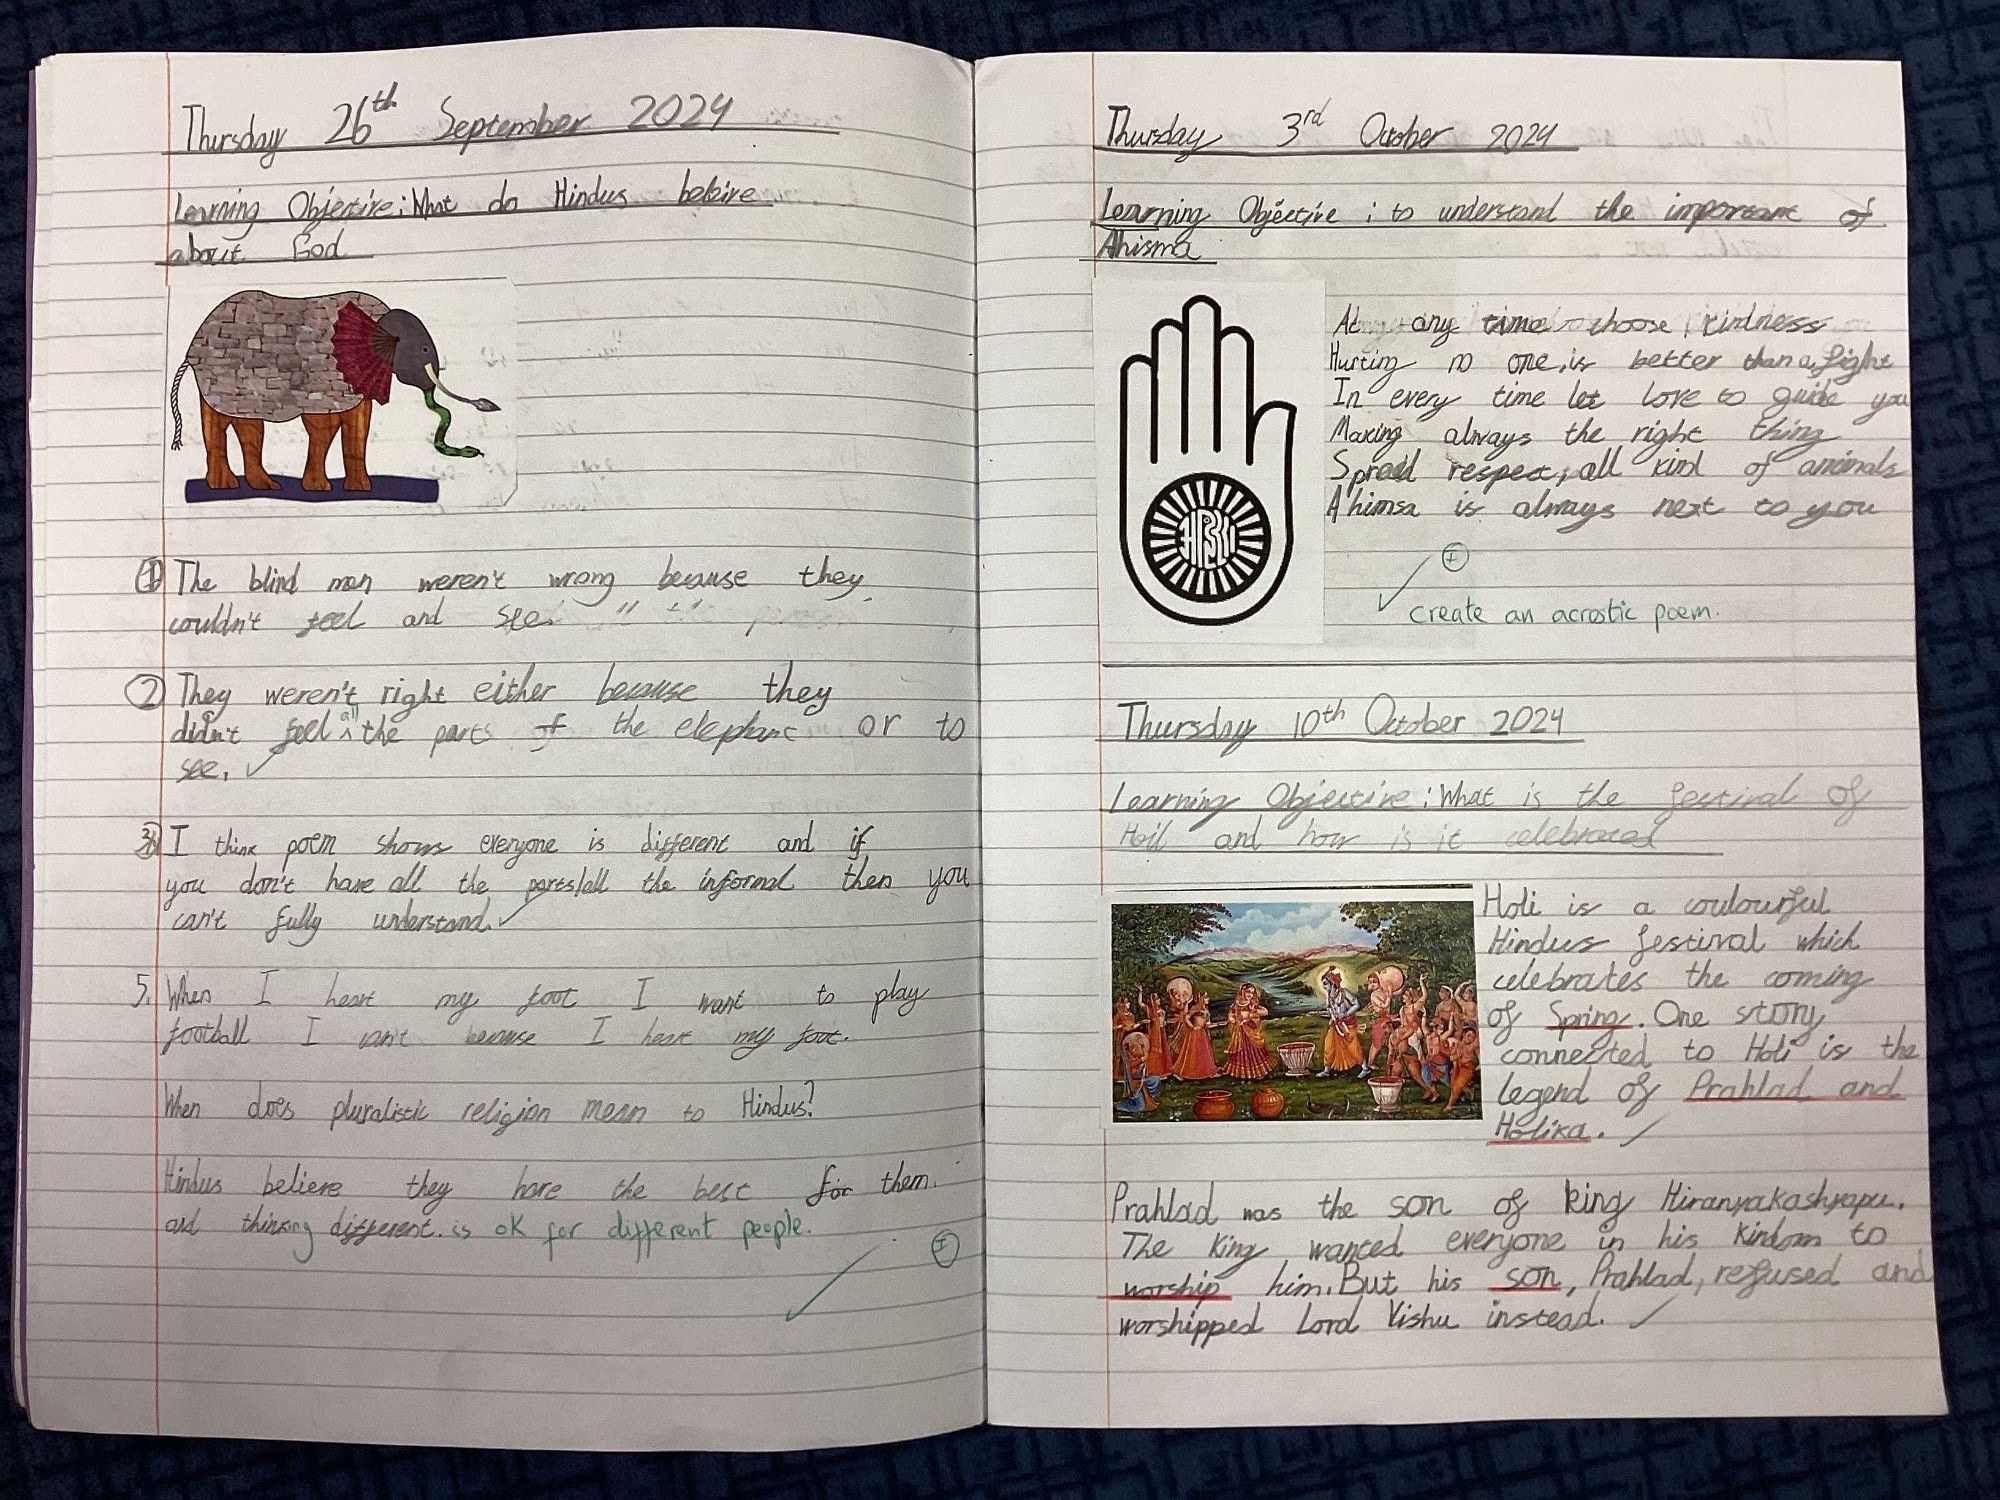 Thursday 26th September 2024
Learning Objective: What do Hindus beleive
about God
1 The blind man weren't wrong because they
couldn't feel and see
2 They weren't right either because they
didn't feel all the parts of the elephant or to
see.
3 I think poem shows everyone is different and if
you don't have all the parts/all the informal then you
can't fully understand.
5. When I heart my foot I want to play
football I can't because I heart my foot.
When does pluralistic religion mean to Hindus?
Hindus believe they have the best for them.
and thinking different. is ok for different people.
I
Thursday 3rd October 2024
Learning Objective : to understand the important of
Ahisma
At any time choose kindness
Hurting no one is better than a fight
In every time let love to guide you
Making always the right thing
Spread respect, all kind of animals
Ahimsa is always next to you
I
create an acrostic poem.
Thursday 10th October 2024
Learning Objective: What is the festival of
Hoil and how is it celebrated
Holi is a coulourful
Hindus festival which
celebrates the coming
of Spring. One story
connected to Holi is the
legend of Prahlad and
Holika.
Prahlad was the son of king Hiranyakashyapu.
The King wanted everyone in his kindom to
worship him. But his son, Prahlad, refused and
worshipped Lord Vishu instead.